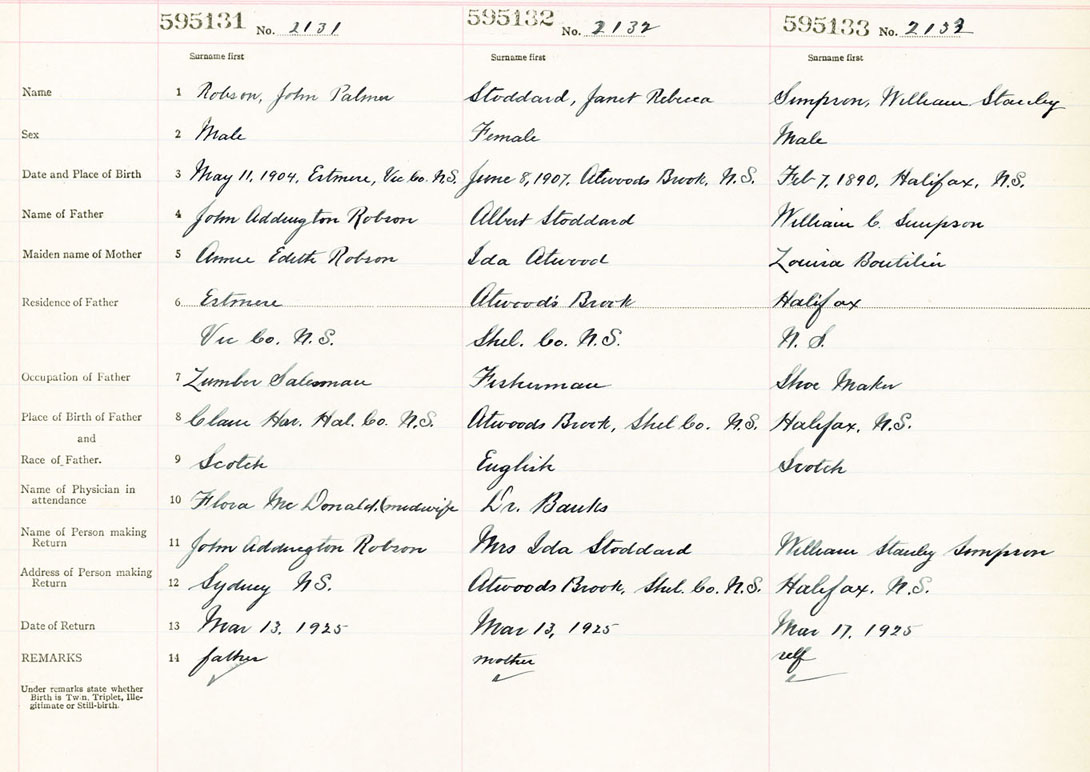 595131 No. 2131 595132 No. 2132 595133 No. 2133
Surname first Surname first Surname first
Name 1 Robson, John Palmer Stoddard, Janet Rebecca Simpson, William Stanley
Sex 2 Male Female Male
Date and Place of Birth 3 May 11, 1904, Estmere, Vic Co. N.S. June 8, 1907. Atwoods Brook, N.S. Feb 7, 1890, Halifax, N.S.
Name of Father 4 John Addington Robson Albert Stoddard William C. Simpson
Maiden name of Mother 5 Annie Edith Robson Ida Atwood Louisa Boutilier
Residence of Father 6 Estmere Atwood's Brook Halifax
Vic Co. N.S. Shel. Co. N.S. N.S.
Occupation of Father 7 Lumber Salesman Fisherman Shoe Maker
Place of Birth of Father 8 Clam Har. Hal. Co. N.S. Atwoods Brook, Shel Co. N.S. Halifax, N.S.
and
Race of Father. 9 Scotch English Scotch
Name of Physician in
attendance 10 Flora Mc Donald, (midwife Dr. Banks
Name of Person making
Return 11 John Addington Robson Mrs Ida Stoddard William Stanley Simpson
Address of Person making
Return 12 Sydney N.S. Atwoods Brook, Shel. Co. N.S. Halifax, N.S.
Date of Return 13 Mar 13, 1925 Mar 13, 1925 Mar 17, 1925
REMARKS 14 father mother self
Under remarks state whether
Birth is Twin, Triplet, Ille-
gitimate or Still-birth.